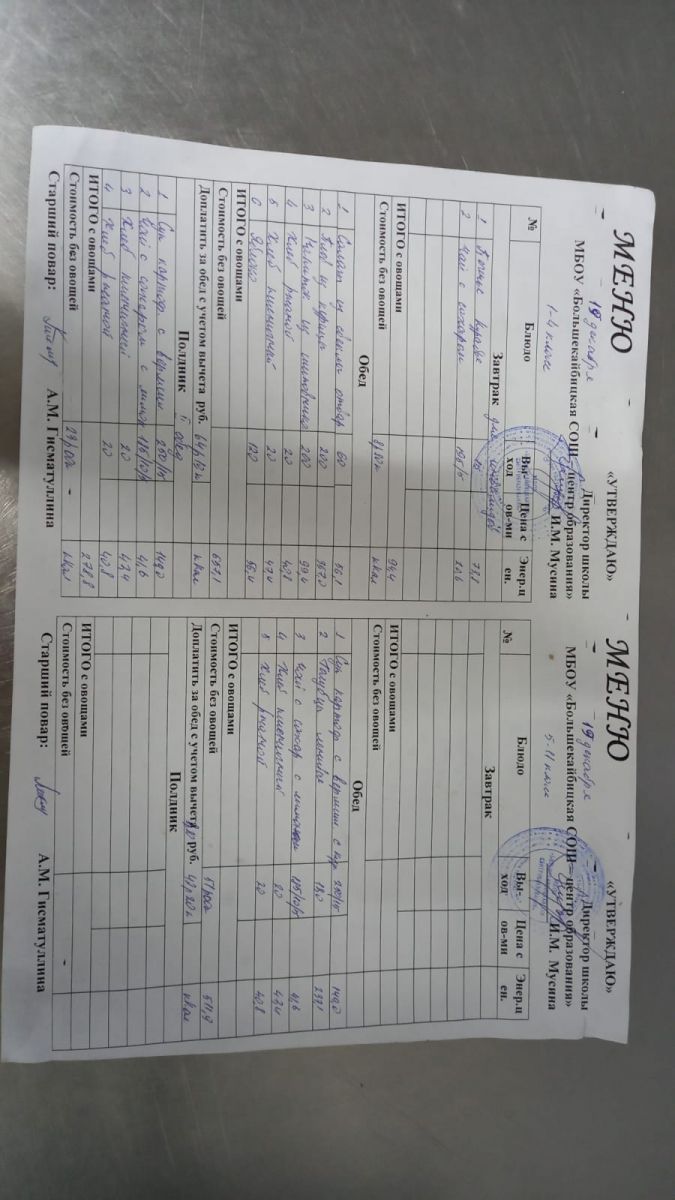 МЕНЮ
«УТВЕРЖДАЮ»
Директор школы
МБОУ «Большекайбицкая СОШ – центр образования»
19 декабря
И.М. Мусина
1-4 класс
№ Блюдо Вы-ход Цена с ов-ми Энер.ц ен.
Завтрак для
1 Печенье 15 73,1
2 Чай с сахаром 195/5
ИТОГО с овощами 94,4
Стоимость без овощей ккал
Обед
1 Салат из свеклы отвар 60 56,1
2 Плов из курицы 200 367,0
3 Напиток из шиповника 200 99,4
4 Хлеб ржаной 20 40,8
5 Хлеб пшеничный 20 47,4
6 Яблоко 120 56,4
ИТОГО с овощами
Стоимость без овощей 667,1
Доплатить за обед с учетом вычета руб. ккал
Полдник
1 Суп картоф. с вермиш 250/15 149,0
2 Чай с сахаром с лимон 195/10/5 41,6
3 Хлеб пшеничный 20 47,4
4 Хлеб ржаной 20 40,8
ИТОГО с овощами 278,8
Стоимость без овощей - ккал
Старший повар: А.М. Гисматуллина
МЕНЮ
«УТВЕРЖДАЮ»
Директор школы
МБОУ «Большекайбицкая СОШ – центр образования»
19 декабря
И.М. Мусина
5-11 класс
№ Блюдо Вы-ход Цена с ов-ми Энер.ц ен.
Завтрак
ИТОГО с овощами
Стоимость без овощей
Обед
1 Суп картоф с вермиш с кур 250/15 149,0
2 Голубцы ленивые
3 Чай с сахар с лимоном 195/10/5 41,6
4 Хлеб пшеничный 20 47,4
5 Хлеб ржаной 20 40,8
ИТОГО с овощами
Стоимость без овощей 511,9
Доплатить за обед с учетом вычета руб. ккал
Полдник
ИТОГО с овощами
Стоимость без овощей -
Старший повар: А.М. Гисматуллина